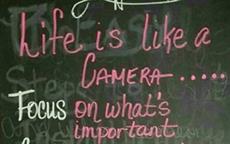 Life is like a
CAMERA.....
Focus on what's
important